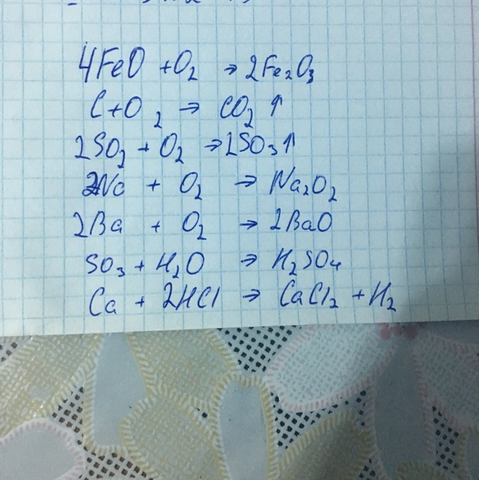 4FeO + O₂ → 2Fe₂O₃
C + O₂ → CO₂ ↑
2SO₂ + O₂ → 2SO₃ ↑
2Na + O₂ → Na₂O₂
2Ba + O₂ → 2BaO
SO₃ + H₂O → H₂SO₄
Ca + 2HCl → CaCl₂ + H₂